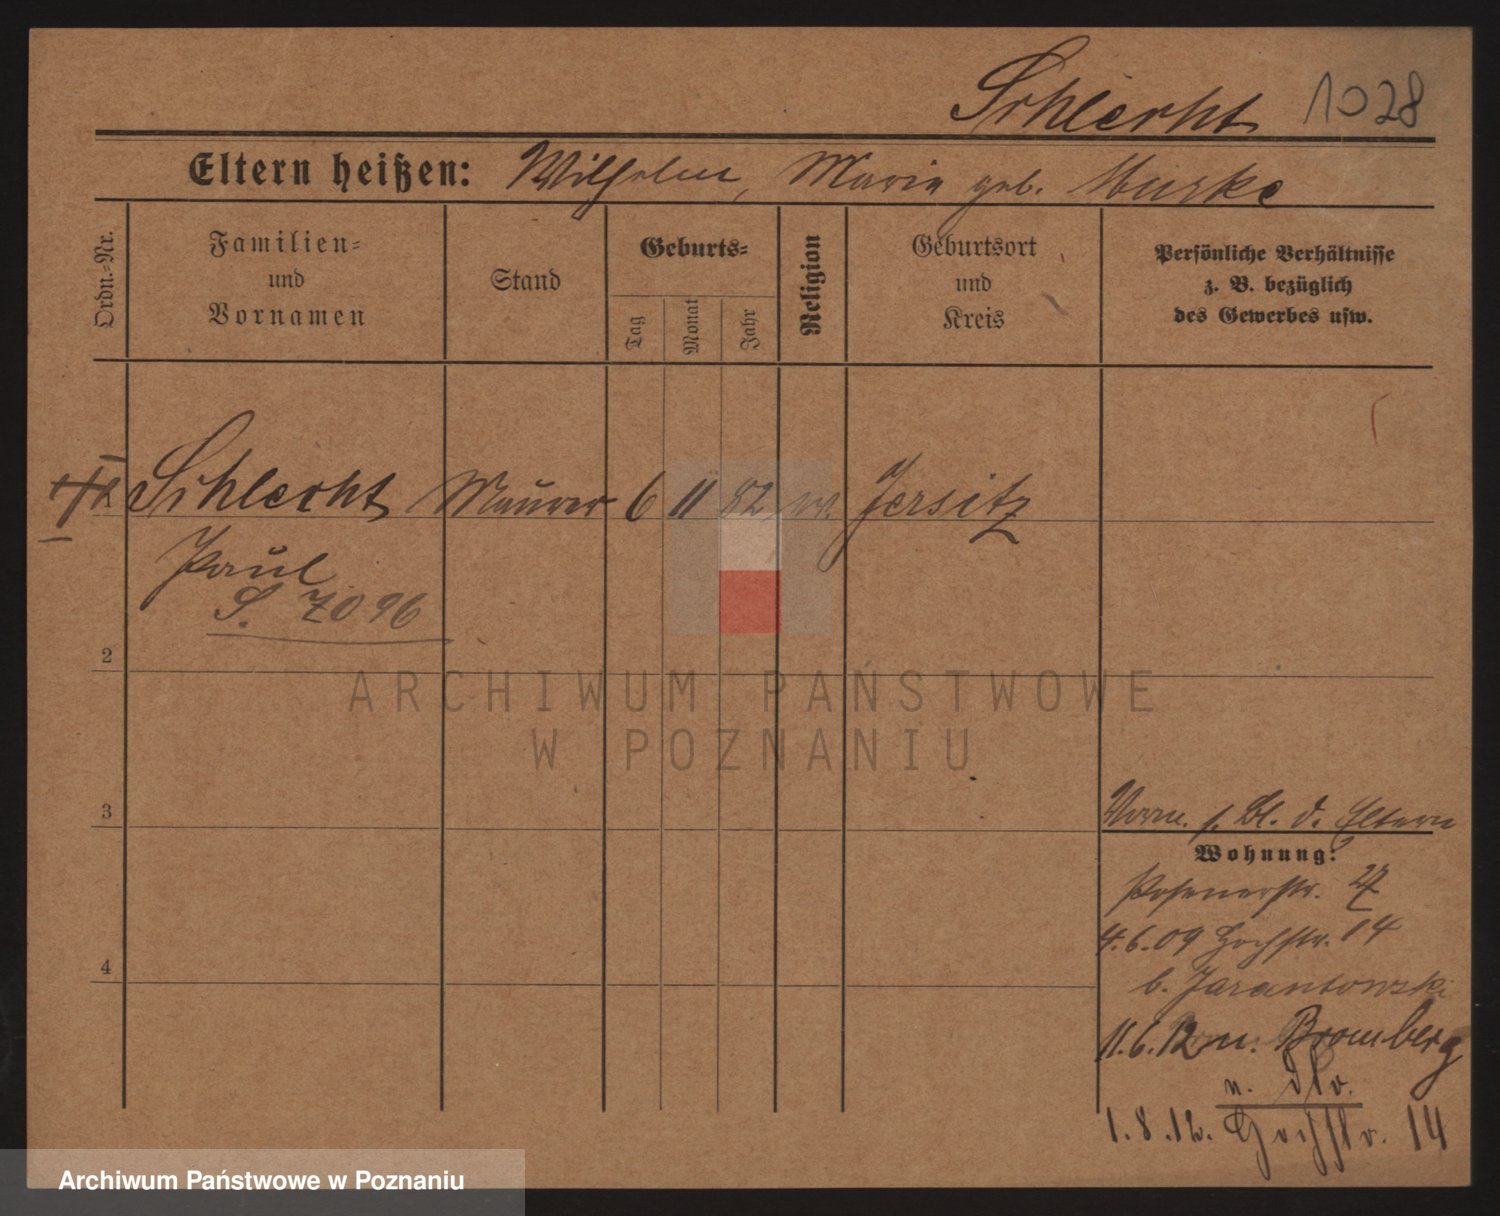 Schlecht 1028
Eltern heißen: Wilhelm, Marie geb. Murke
Ordn.=Nr.
Familien=
und
Vornamen
Stand
Geburts=
Tag
Monat
Jahr
Religion
Geburtsort
und
Kreis
Persönliche Verhältnisse
z. B. bezüglich
des Gewerbes usw.
Schlecht Maurer 6 11 82 Jersitz
Paul
S. 7096
2
3
4
Vorm. s. Bl. d. Eltern
Wohnung:
Posenerstr. 27
4.6.09 Hochstr. 14
b. Jarantowski
11.6.12 n. Bromberg
1.8.12. Hochstr. 14
ARCHIWUM PAŃSTWOWE
W POZNANIU
Archiwum Państwowe w Poznaniu